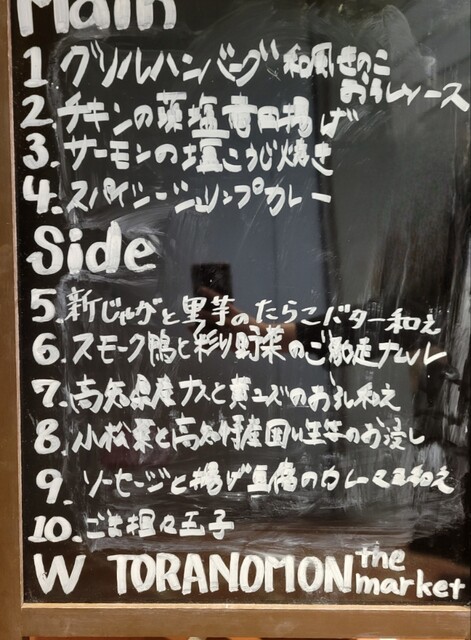 Main
1 グリルハンバーグ 和風きのこ
おろしソース
2. チキンの藻塩竜田揚げ
3. サーモンの塩こうじ焼き
4. スパイシーシュリンプカレー
Side
5. 新じゃがと里芋のたらこバター和え
6. スモーク鴨と彩り野菜のご馳走ナムル
7. 高知県産ナスと黄ユズのおろし和え
8. 小松菜と高知特産
のお浸し
9. ソーセージと揚げ豆腐のカレーマヨ和え
10. ごま担々玉子
W TORANOMON the
market